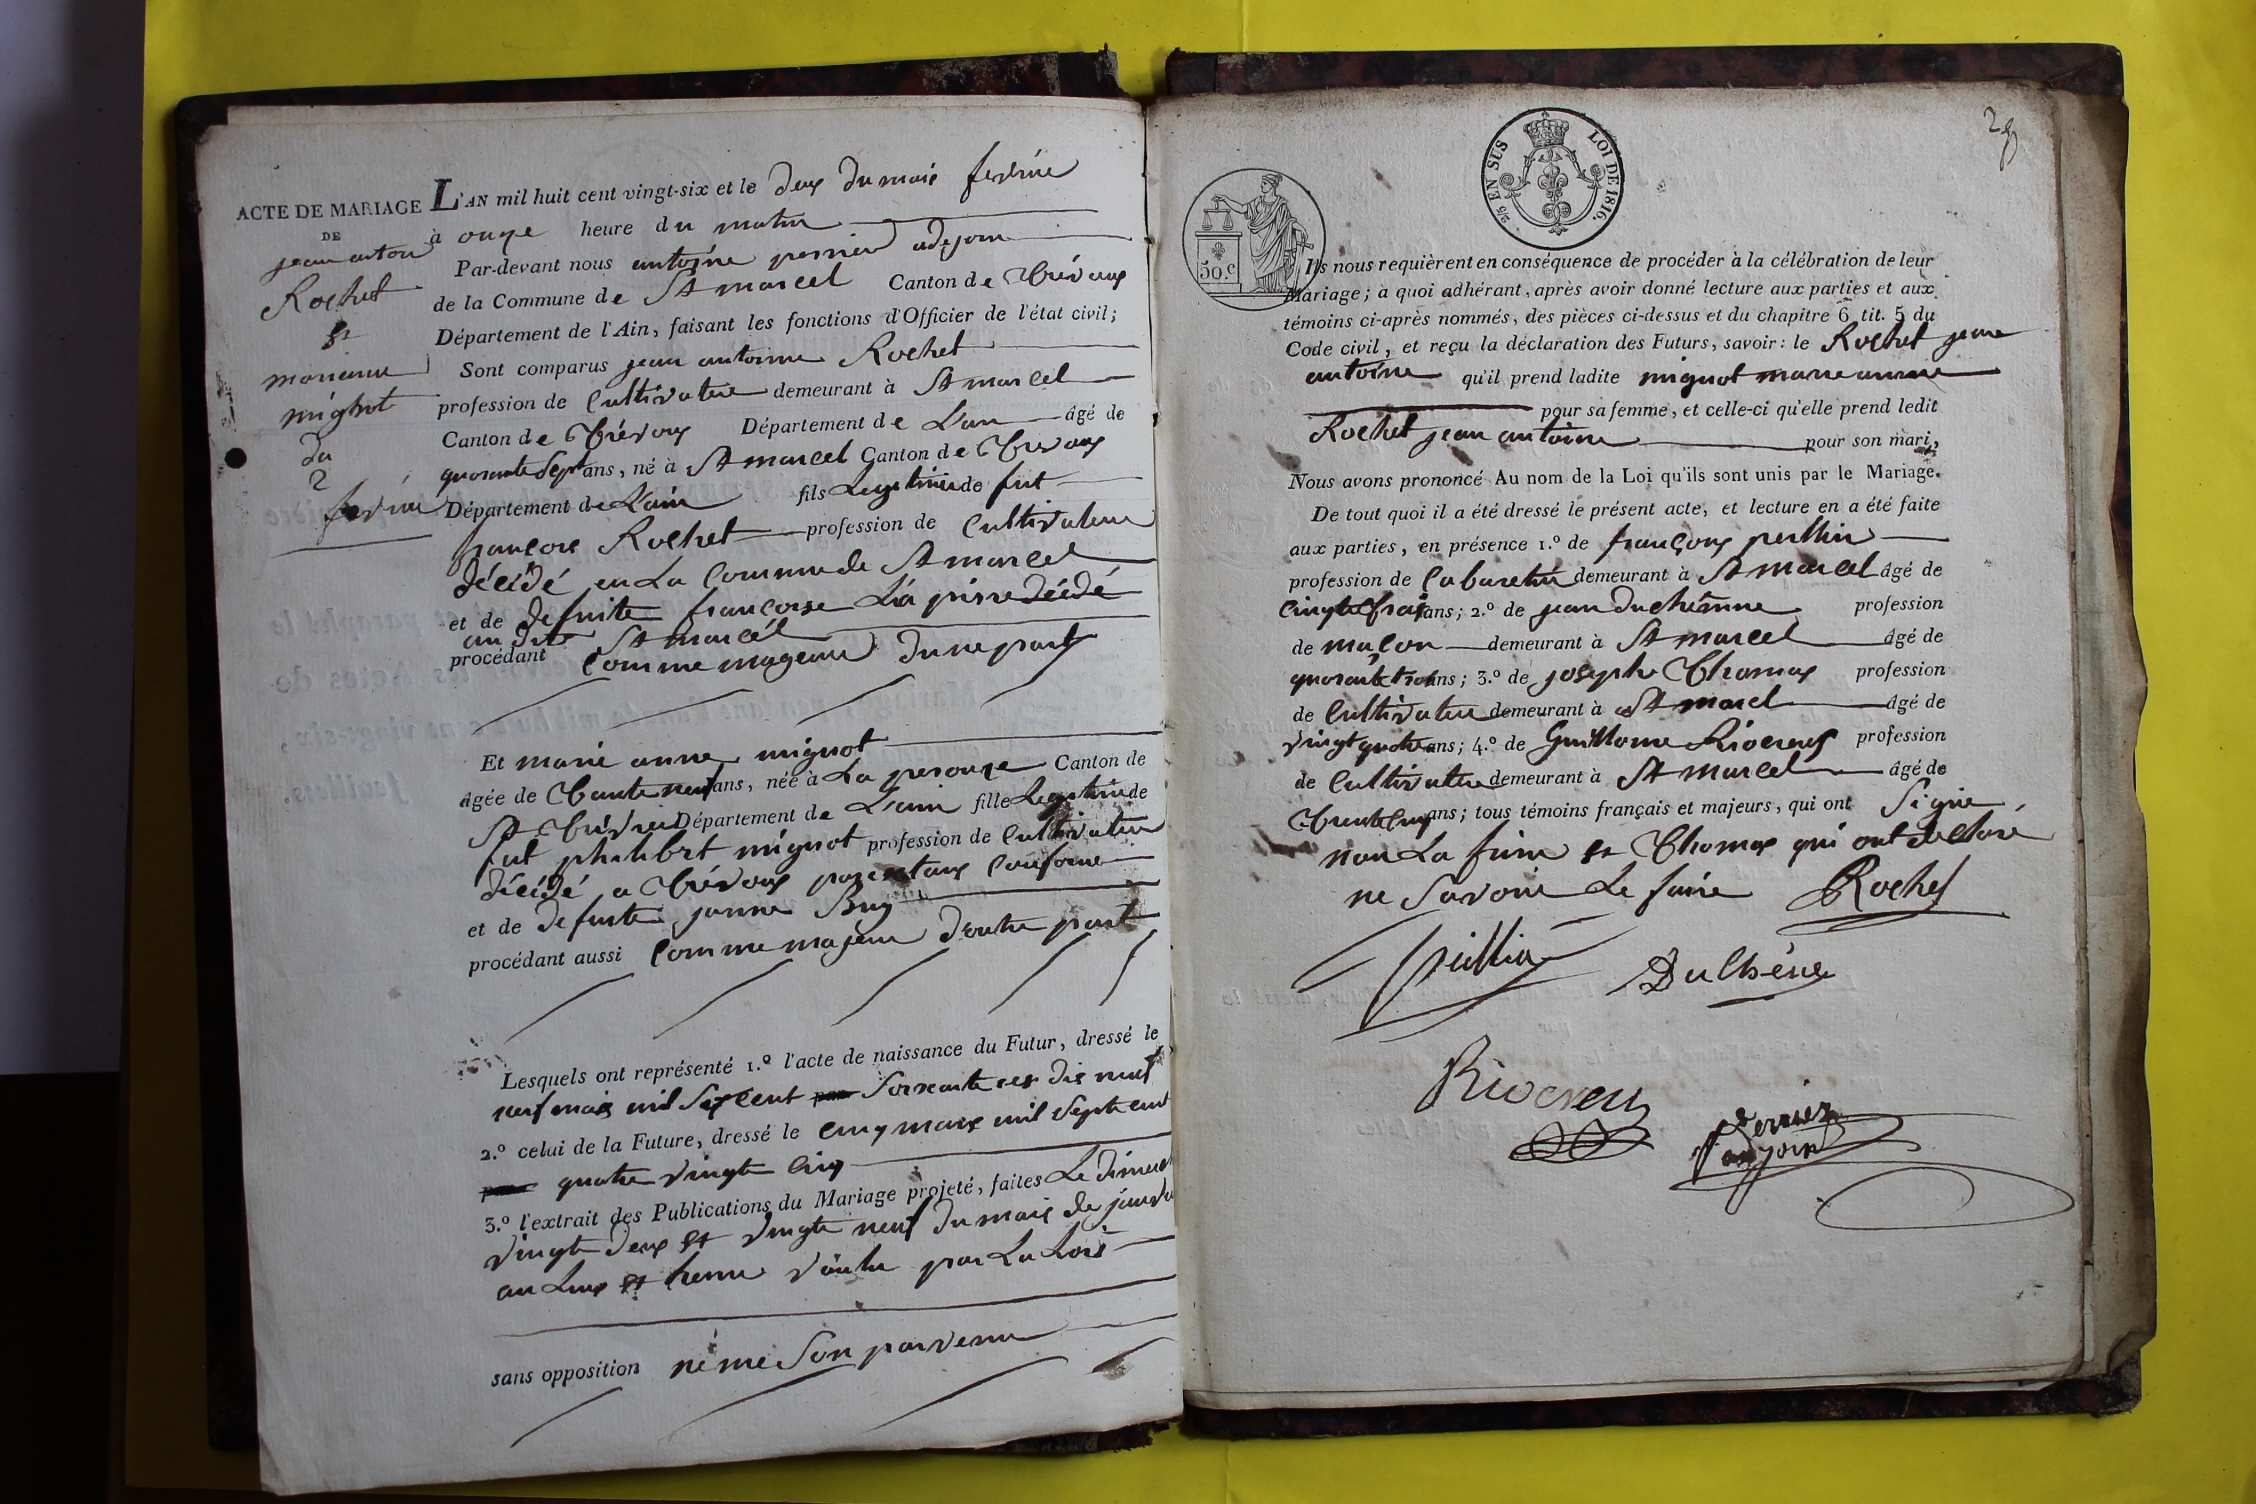 ACTE DE MARIAGE
DE
jean antoine
Rochet
et
marianne
mignot
du
2
fevrier
L'AN mil huit cent vingt-six et le deux du mois fevrier
à onze heure du matin
Par-devant nous antoine perrier adjoin
de la Commune de St marcel Canton de Trévoux
Département de l'Ain, faisant les fonctions d'Officier de l'état civil;
Sont comparus jean antoine Rochet
profession de Cultivateur demeurant à St marcel
Canton de Trévoux Département de L'ain âgé de
quarante Sept ans, né à St marcel Canton de Trevoux
Département de L'ain fils Legitime de fut
françois Rochet profession de Cultivateur
décédé en La Commune de St marcel
et de defuite francoise décédé
au dit St marcel
procédant Comme mageur dune part
Et marie anne mignot
âgée de Trante neuf ans, née à La perouze Canton de
St Trivier Département de L'ain fille Legitime de
fut philibrt mignot profession de Cultivateur
décédé a Trévoux
et de defuite janne Buy
procédant aussi Comme majeur d'outre part
Lesquels ont représenté 1.º l'acte de naissance du Futur, dressé le
neuf mars mil Sept cent Soixante et dix neuf
2.º celui de la Future, dressé le cinq mars mil Sept cent
quatre vingt cinq
3.º l'extrait des Publications du Mariage projeté, faites Le dimench
vingt deux et vingt neuf du mois de janvier
au Lieux et heure voulu par La Lois
sans opposition parvenu
25
2/5 EN SUS LOI DE 1816.
50.c
Ils nous requièrent en conséquence de procéder à la célébration de leur
Mariage; à quoi adhérant, après avoir donné lecture aux parties et aux
témoins ci-après nommés, des pièces ci-dessus et du chapitre 6 tit. 5 du
Code civil, et reçu la déclaration des Futurs, savoir: le Rochet jean
antoine qu'il prend ladite mignot marie anne
pour sa femme, et celle-ci qu'elle prend ledit
Rochet jean antoine pour son mari,
Nous avons prononcé Au nom de la Loi qu'ils sont unis par le Mariage.
De tout quoi il a été dressé le présent acte, et lecture en a été faite
aux parties, en présence 1.º de françois
profession de Cabaretier demeurant à St marcel âgé de
ans; 2.º de jean duchêne profession
de maçon demeurant à St marcel âgé de
quarante trois ans; 3.º de joseph Thomas profession
de Cultivateur demeurant à St marcel âgé de
vingt quatre ans; 4.º de Guillome Riocreux profession
de Cultivateur demeurant à St marcel âgé de
Trente Cinq ans; tous témoins français et majeurs, qui ont Signé
non La future et Thomas qui ont declaré
ne Savoir Le faire Rochet
Duchêne
Riocreux
Perrier
adjoint